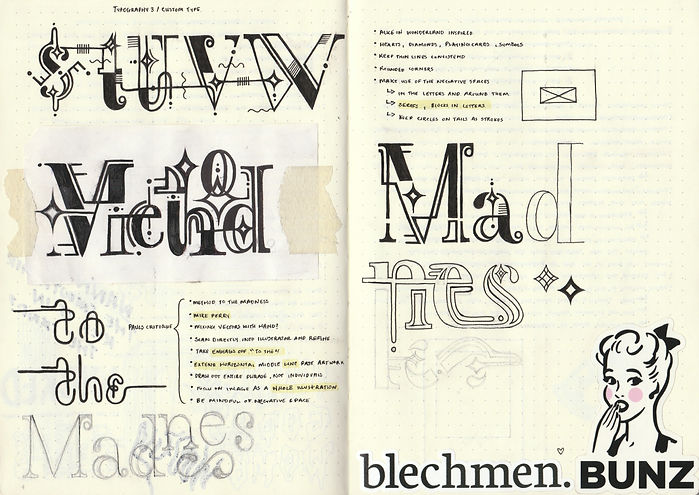 TYPOGRAPHY 3 / CUSTOM TYPE
S T U V W X
Method
to
the
Madnes
PANEL CRITIQUE
• METHOD TO THE MADNESS
• MIKE PERRY
• MIXING VECTORS WITH HAND!
• SCAN DIRECTLY INTO ILLUSTRATOR AND REFINE
• TAKE EMPHASIS OFF "TO THE"
• EXTEND HORIZONTAL MIDDLE LINE PAST ARTWORK
• DRAW OUT ENTIRE PHRASE, NOT INDIVIDUAL
• FOCUS ON IMAGE AS A WHOLE ILLUSTRATION
• BE MINDFUL OF NEGATIVE SPACE
• ALICE IN WONDERLAND INSPIRED
• HEARTS, DIAMONDS, PLAYING CARDS, SYMBOLS
• KEEP THIN LINES CONSISTENT
• ROUNDED CORNERS
• MAKE USE OF THE NEGATIVE SPACES
↳ IN THE LETTERS AND AROUND THEM
↳ SERIFS, BLOCKS IN LETTERS
↳ KEEP CIRCLES ON TAILS AS STROKES
Mad
nes
blechmen. BUNZ